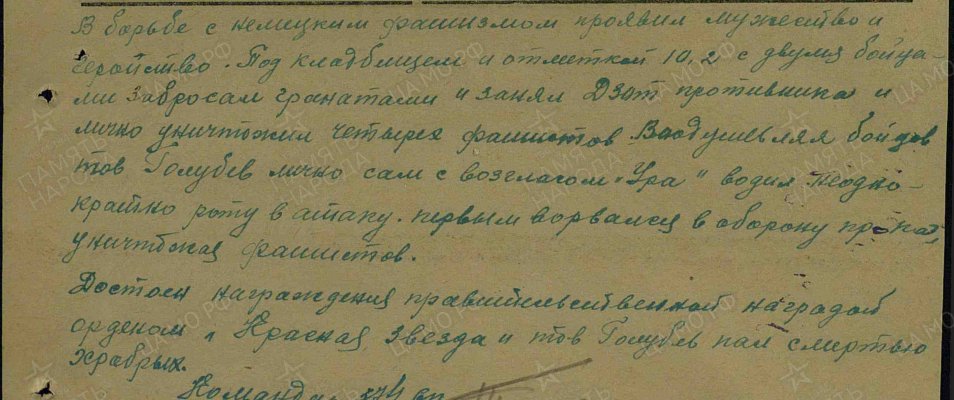 В борьбе с немецким фашизмом проявил мужество и
геройство. Под кладбищем и отметкой 10,2 с двумя бойца-
ми забросал гранатами и занял Дзот противника и
лично уничтожил четырех фашистов. Воодушевляя бойцов
тов Голубев лично сам с возгласом „Ура" водил неодно-
кратно роту в атаку. первым ворвался в оборону
уничтожая фашистов.
Достоен награждения правительственной наградой
орденом „Красная звезда" тов Голубев пал смертью
храбрых.